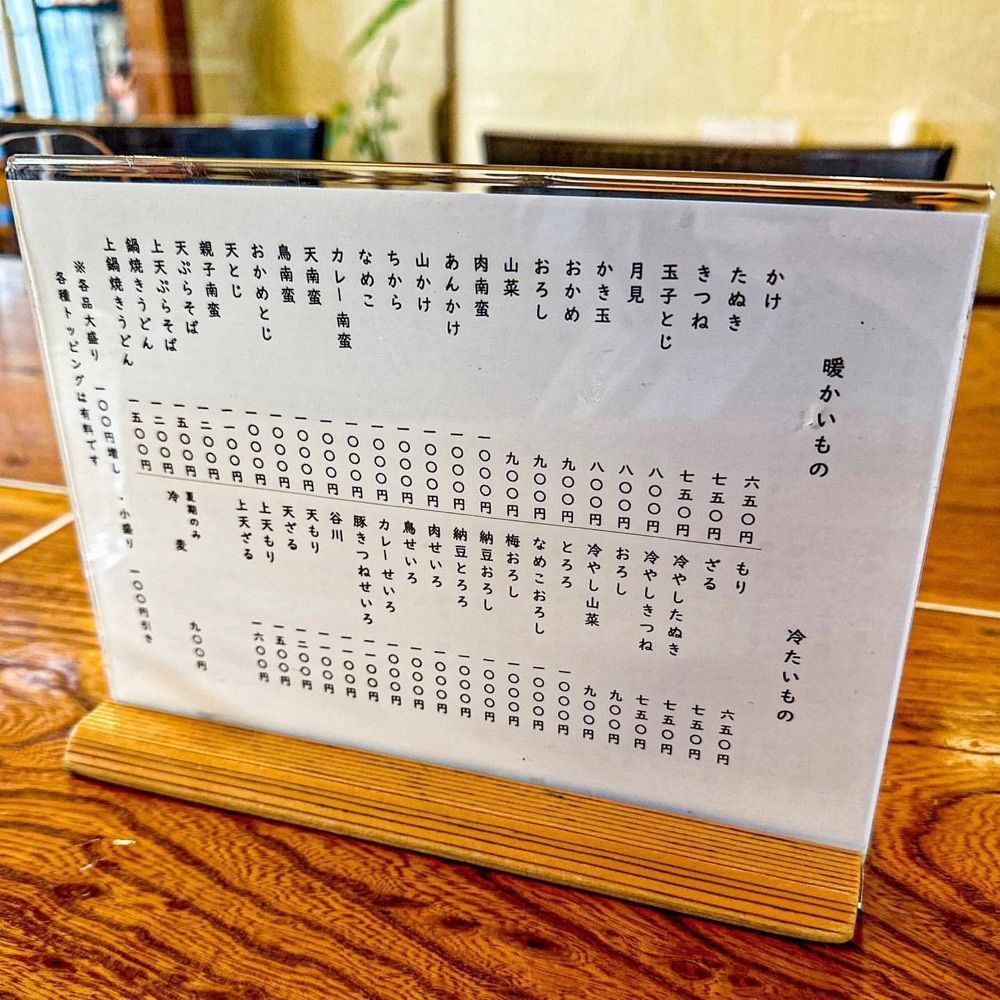 暖かいもの
かけ 六五〇円
たぬき 七五〇円
きつね 七五〇円
玉子とじ 八〇〇円
月見 八〇〇円
かき玉 八〇〇円
おかめ 九〇〇円
おろし 九〇〇円
山菜 九〇〇円
肉南蛮 一〇〇〇円
あんかけ 一〇〇〇円
山かけ 一〇〇〇円
ちから 一〇〇〇円
なめこ 一〇〇〇円
カレー南蛮 一〇〇〇円
天南蛮 一〇〇〇円
鳥南蛮 一〇〇〇円
おかめとじ 一〇〇〇円
天とじ 一〇〇〇円
親子南蛮 一一〇〇円
天ぷらそば 一二〇〇円
上天ぷらそば 一五〇〇円
鍋焼きうどん 一二〇〇円
上鍋焼きうどん 一五〇〇円
冷たいもの
もり 六五〇円
ざる 七五〇円
冷やしたぬき 七五〇円
冷やしきつね 七五〇円
おろし 九〇〇円
冷やし山菜 九〇〇円
とろろ 一〇〇〇円
なめこおろし 一〇〇〇円
梅おろし 一〇〇〇円
納豆おろし 一〇〇〇円
納豆とろろ 一〇〇〇円
肉せいろ 一〇〇〇円
鳥せいろ 一〇〇〇円
カレーせいろ 一〇〇〇円
豚きつねせいろ 一一〇〇円
谷川 一一〇〇円
天もり 一一〇〇円
天ざる 一二〇〇円
上天もり 一五〇〇円
上天ざる 一六〇〇円
夏期のみ
冷麦 九〇〇円
※各品大盛り 一〇〇円増し ・小盛り 一〇〇円引き
各種トッピングは有料です